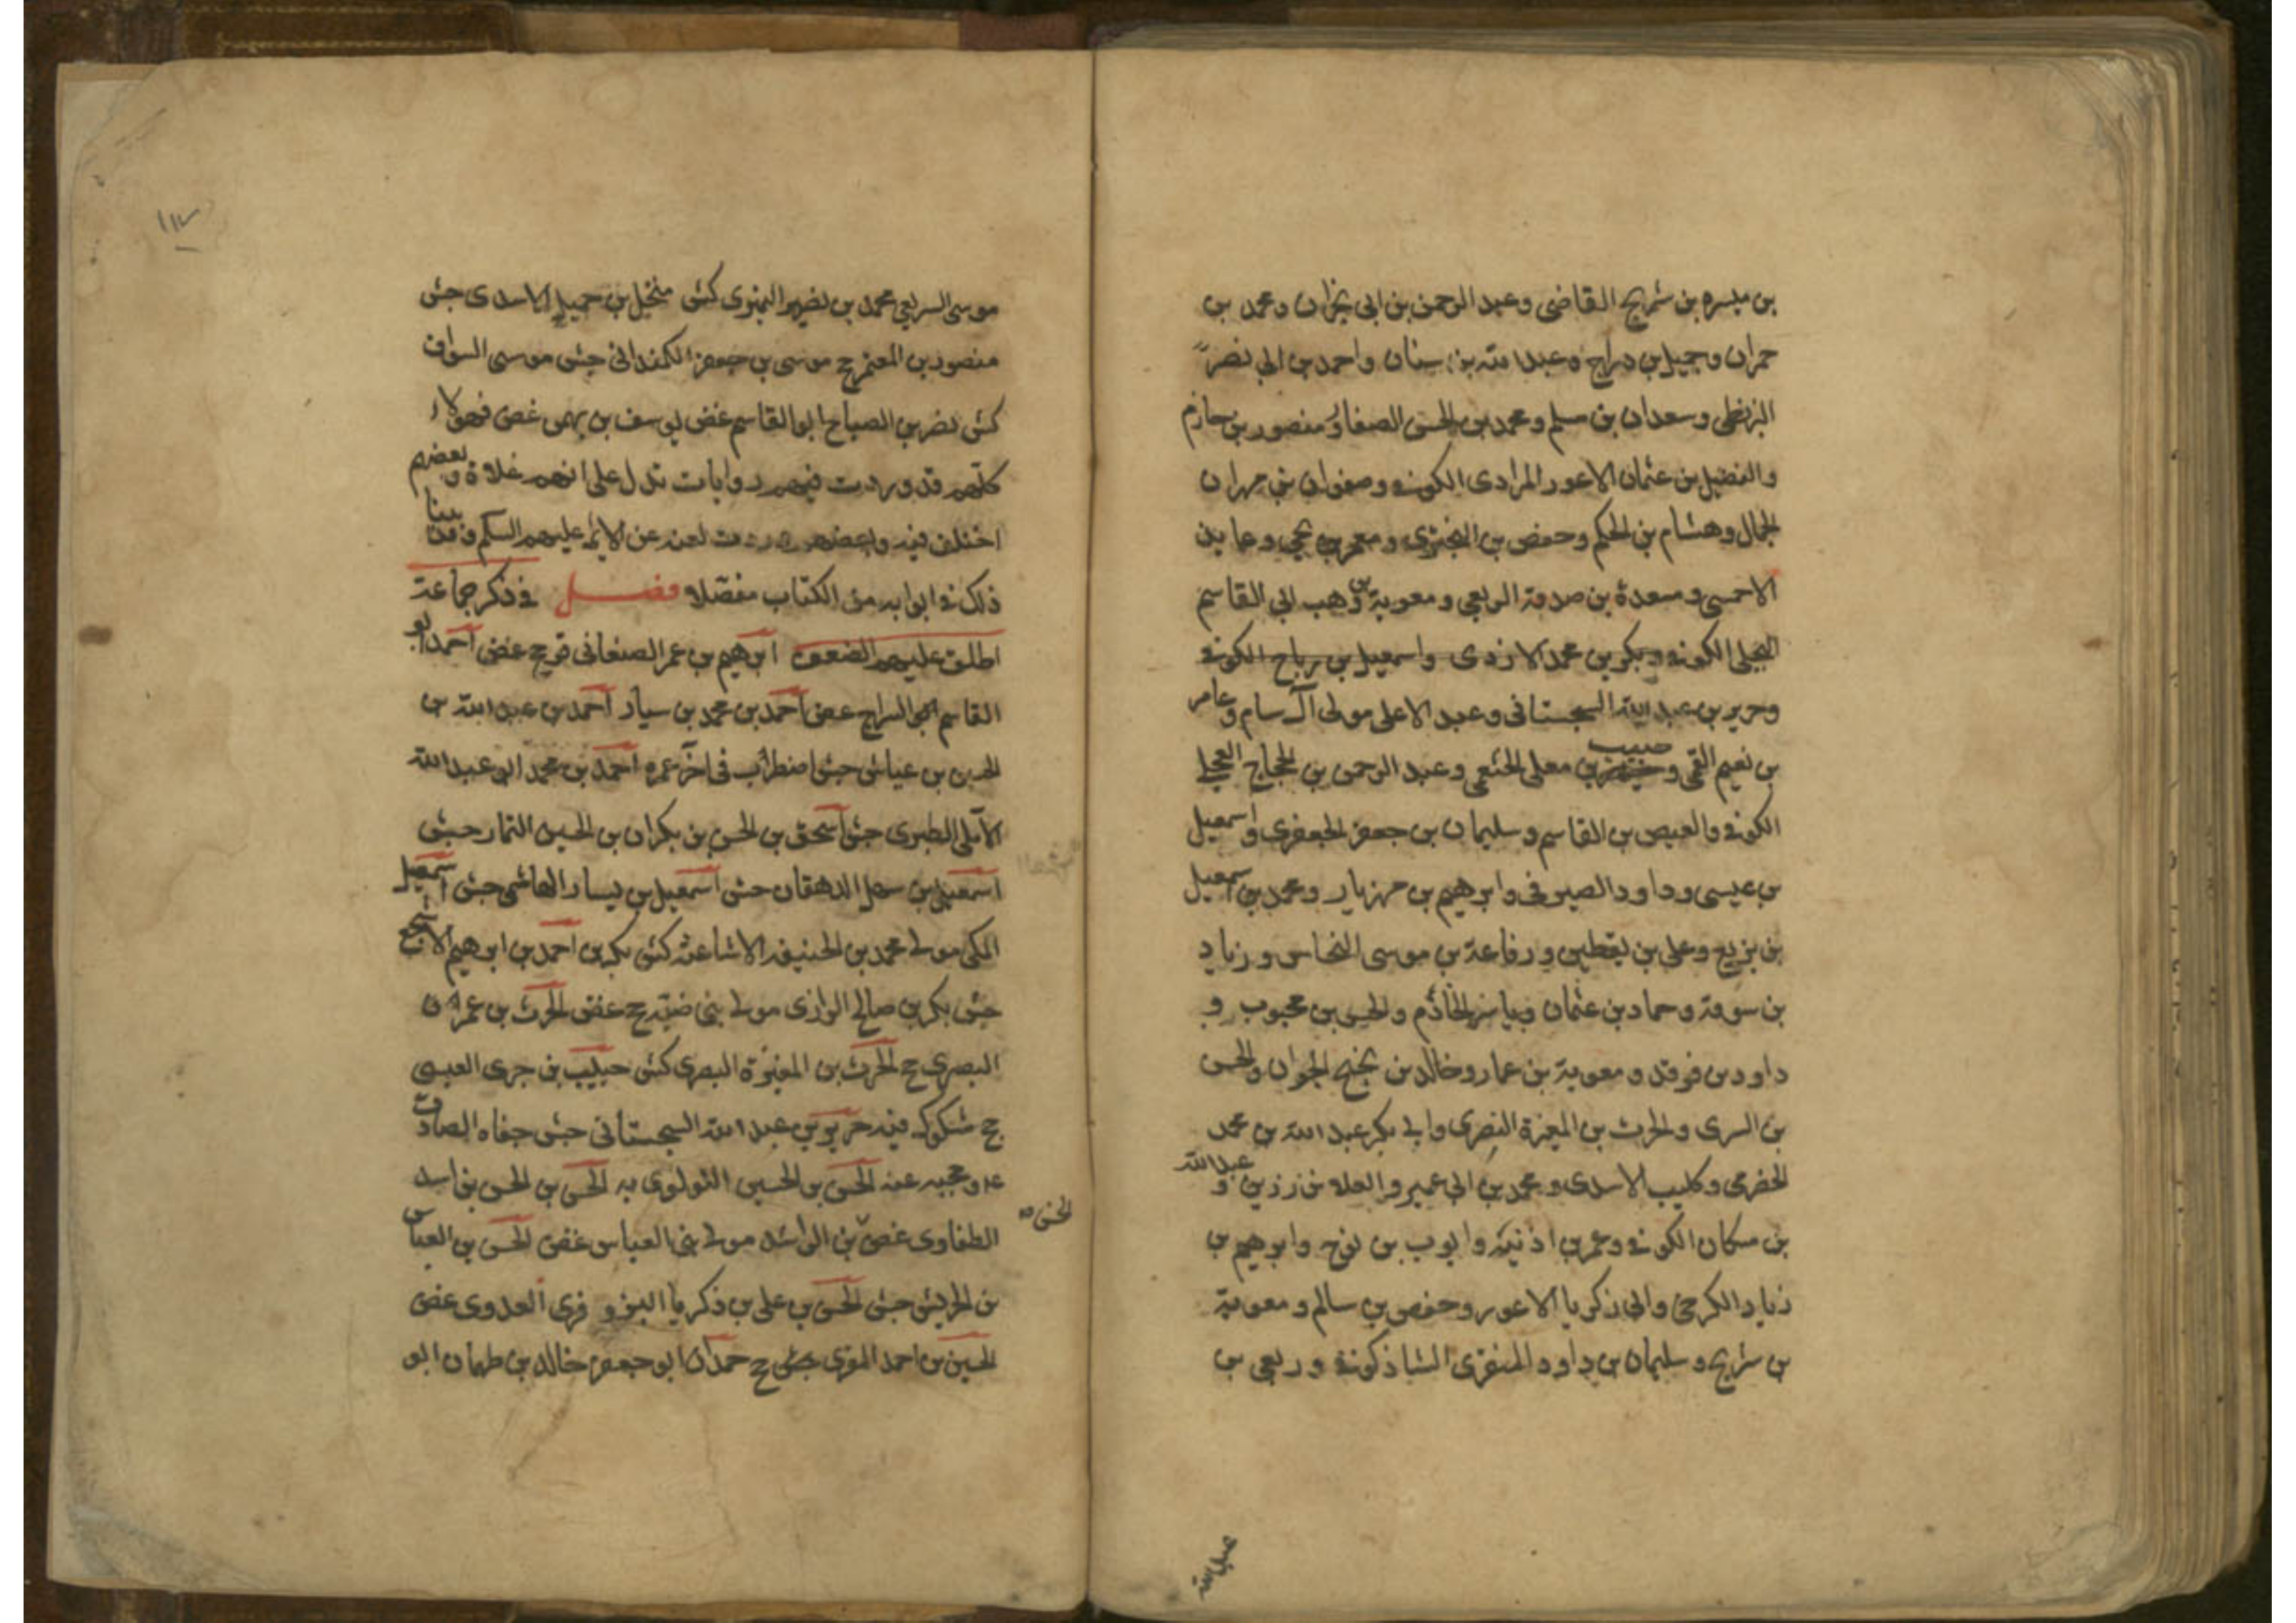 بن ميسره بن شريح القاضى وعبد الرحمن بن ابى نجران ومحمد بن
حمران وجميل بن دراج وعبد الله بن سنان واحمد بن ابى نصر
البزنطى وسعدان بن مسلم ومحمد بن الحسن الصفار ومنصور بن حازم
والفضيل بن عثمان الاعور المرادى الكوفى وصفوان بن مهران
الجمال وهشام بن الحكم وحفص بن البخترى ومعمر بن يحيى وعايذ
الاحمسى ومسعدة بن صدقة الربعى ومعوية بن وهب ابى القاسم
البجلى الكوفى وبكر بن محمد الازدى واسمعيل بن رباح الكوفى
وحريز بن عبد الله السجستانى وعبد الاعلى مولى آل سام وعامر
بن نعيم القمى وحبيب بن معلى الخثعمى وعبد الرحمن بن الحجاج البجلى
الكوفى والعيص بن القاسم وسليمان بن جعفر الجعفرى واسمعيل
بن عيسى وداود الصيرفى وابرهيم بن مهزيار ومحمد بن اسمعيل
بن بزيع وعلى بن يقطين ورفاعة بن موسى النخاس وزياد
بن سوقة وحماد بن عثمان وياسر الخادم والحسن بن محبوب و
داود بن فرقد ومعوية بن عمار وخالد بن نجيح الجوان والحسن
بن السرى والحرث بن المغيرة النصرى وابى بكر عبد الله بن محمد
الحضرمى وكليب الاسدى ومحمد بن ابى عمير والعلا بن رزين وعبد الله
بن مسكان الكوفى وعمر بن اذنية وايوب بن نوح وابرهيم بن
زياد الكرخى وابى زكريا الاعور وحفص بن سالم ومعوية
بن شريح وسليمان بن داود المنقرى الشاذكونى وربعى بن
عبد الله
١١٢
موسى السريعى محمد بن نضير النميرى كش منخل بن جميل الاسدى جش
منصور بن المعتمر ج موسى بن جعفر الكمنذانى جش موسى السواق
كش نصر بن الصباح ابو القاسم غض يوسف بن يهمن غض فهولاء
كلهم قد وردت فيهم روايات تدل على انهم غلاة وبعضهم
اختلف فيه وبعضهم وردت لعنه عن الائمة عليهم السلم وقد بينا
ذلك فى ابوابه من الكتاب مفصلا فصل فى ذكر جماعة
اطلق عليهم الضعف ابرهيم بن عمر الصنعانى ق ج غض احمد ابو
القاسم السراج غض احمد بن محمد بن سيار احمد بن عبد الله بن
الحسن بن عياش جش اضطرب فى آخر عمره احمد بن محمد ابو عبد الله
الآملى الطبرى جش اسحق بن الحسن بن بكران بن الحسين التمار جش
اسمعيل بن سهل الدهقان جش اسمعيل بن يسار الهاشمى جش اسمعيل
المكى مولى محمد بن الحنيفة الاشاعثة كش بكر بن احمد بن ابرهيم الاشج
جش بكر بن صالح الرازى مولى بنى ضبة ج غض الحرث بن عمران
البصرى ج الحرث بن المغيرة البصرى كش حبيب بن جرى العبسى
ج مشكوك فيه حريز بن عبد الله السجستانى جش جفاه الصادق
ع وحجبه عنه الحسن بن الحسين اللولوى به الحسن بن الحسن بن اسد
الطفاوى غض بن الراشد مولى بنى العباس غض الحسن بن العباس
الحسن
بن الحريش جش الحسن بن على بن زكريا البزوفرى العدوى غض
الحسين بن احمد المنقرى جش ج حمدان ابو جعفر خالد بن طهمان ابو